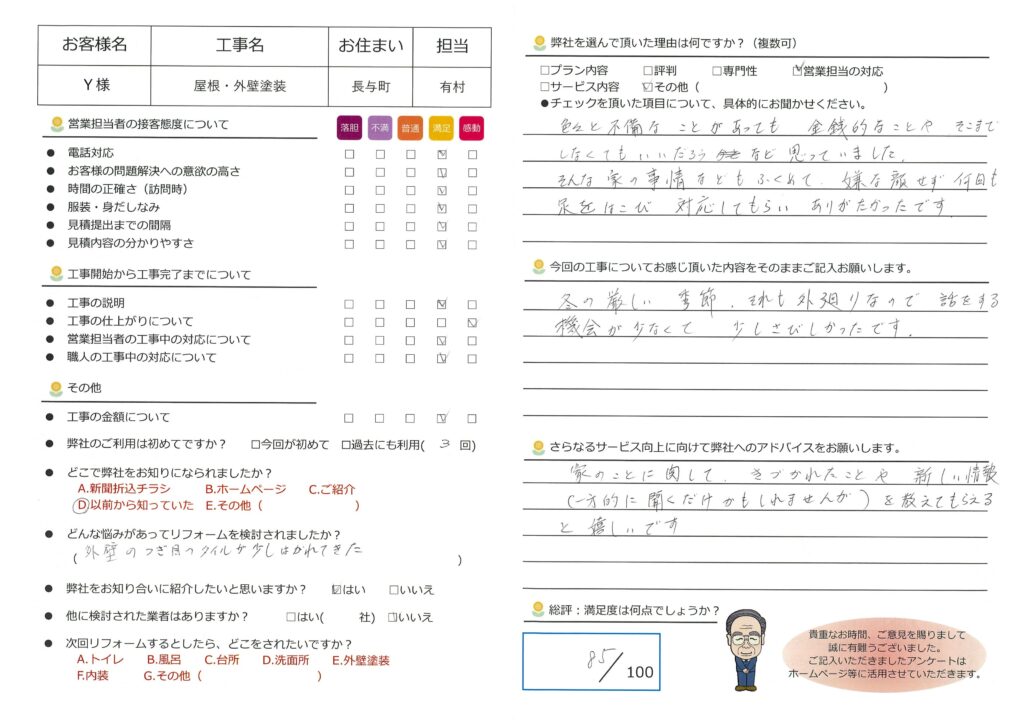 お客様名 工事名 お住まい 担当
Y様 屋根・外壁塗装 長与町 有村
営業担当者の接客態度について 落胆 不満 普通 満足 感動
● 電話対応 □ □ □ ☑ □
● お客様の問題解決への意欲の高さ □ □ □ ☑ □
● 時間の正確さ（訪問時） □ □ □ ☑ □
● 服装・身だしなみ □ □ □ ☑ □
● 見積提出までの間隔 □ □ □ ☑ □
● 見積内容の分かりやすさ □ □ □ ☑ □
工事開始から工事完了までについて
● 工事の説明 □ □ □ ☑ □
● 工事の仕上がりについて □ □ □ □ ☑
● 営業担当者の工事中の対応について □ □ □ ☑ □
● 職人の工事中の対応について □ □ □ ☑ □
その他
● 工事の金額について □ □ □ ☑ □
● 弊社のご利用は初めてですか？ □今回が初めて □過去にも利用( 3 回)
● どこで弊社をお知りになられましたか？
A.新聞折込チラシ B.ホームページ C.ご紹介
D.以前から知っていた E.その他（ ）
● どんな悩みがあってリフォームを検討されましたか？
（ 外壁のつぎ目のタイルが少しはがれてきた ）
● 弊社をお知り合いに紹介したいと思いますか？ ☑はい □いいえ
● 他に検討された業者はありますか？ □はい( 社) ☑いいえ
● 次回リフォームするとしたら、どこをされたいですか？
A.トイレ B.風呂 C.台所 D.洗面所 E.外壁塗装
F.内装 G.その他（ ）
弊社を選んで頂いた理由は何ですか？（複数可）
□プラン内容 □評判 □専門性 ☑営業担当の対応
□サービス内容 ☑その他（ ）
●チェックを頂いた項目について、具体的にお聞かせください。
色々と不備な ことがあっても 金銭的なことや、そこまで
しなくてもいいだろう など 思っていました。
そんな 家の事情などもふくめて、嫌な顔せず 何回も
足をはこび 対応してもらい ありがたかったです。
今回の工事についてお感じ頂いた内容をそのままご記入お願いします。
冬の厳しい 季節、それも外廻りなので 話をする
機会が少なくて 少しさびしかったです。
さらなるサービス向上に向けて弊社へのアドバイスをお願いします。
家のことに関して、きづかれたことや 新しい情報
（一方的に聞くだけかもしれませんが）を教えてもらえる
と 嬉しいです
総評：満足度は何点でしょうか？
85/100
貴重なお時間、ご意見を賜りまして
誠に有難うございました。
ご記入いただきましたアンケートは
ホームページ等に活用させていただきます。